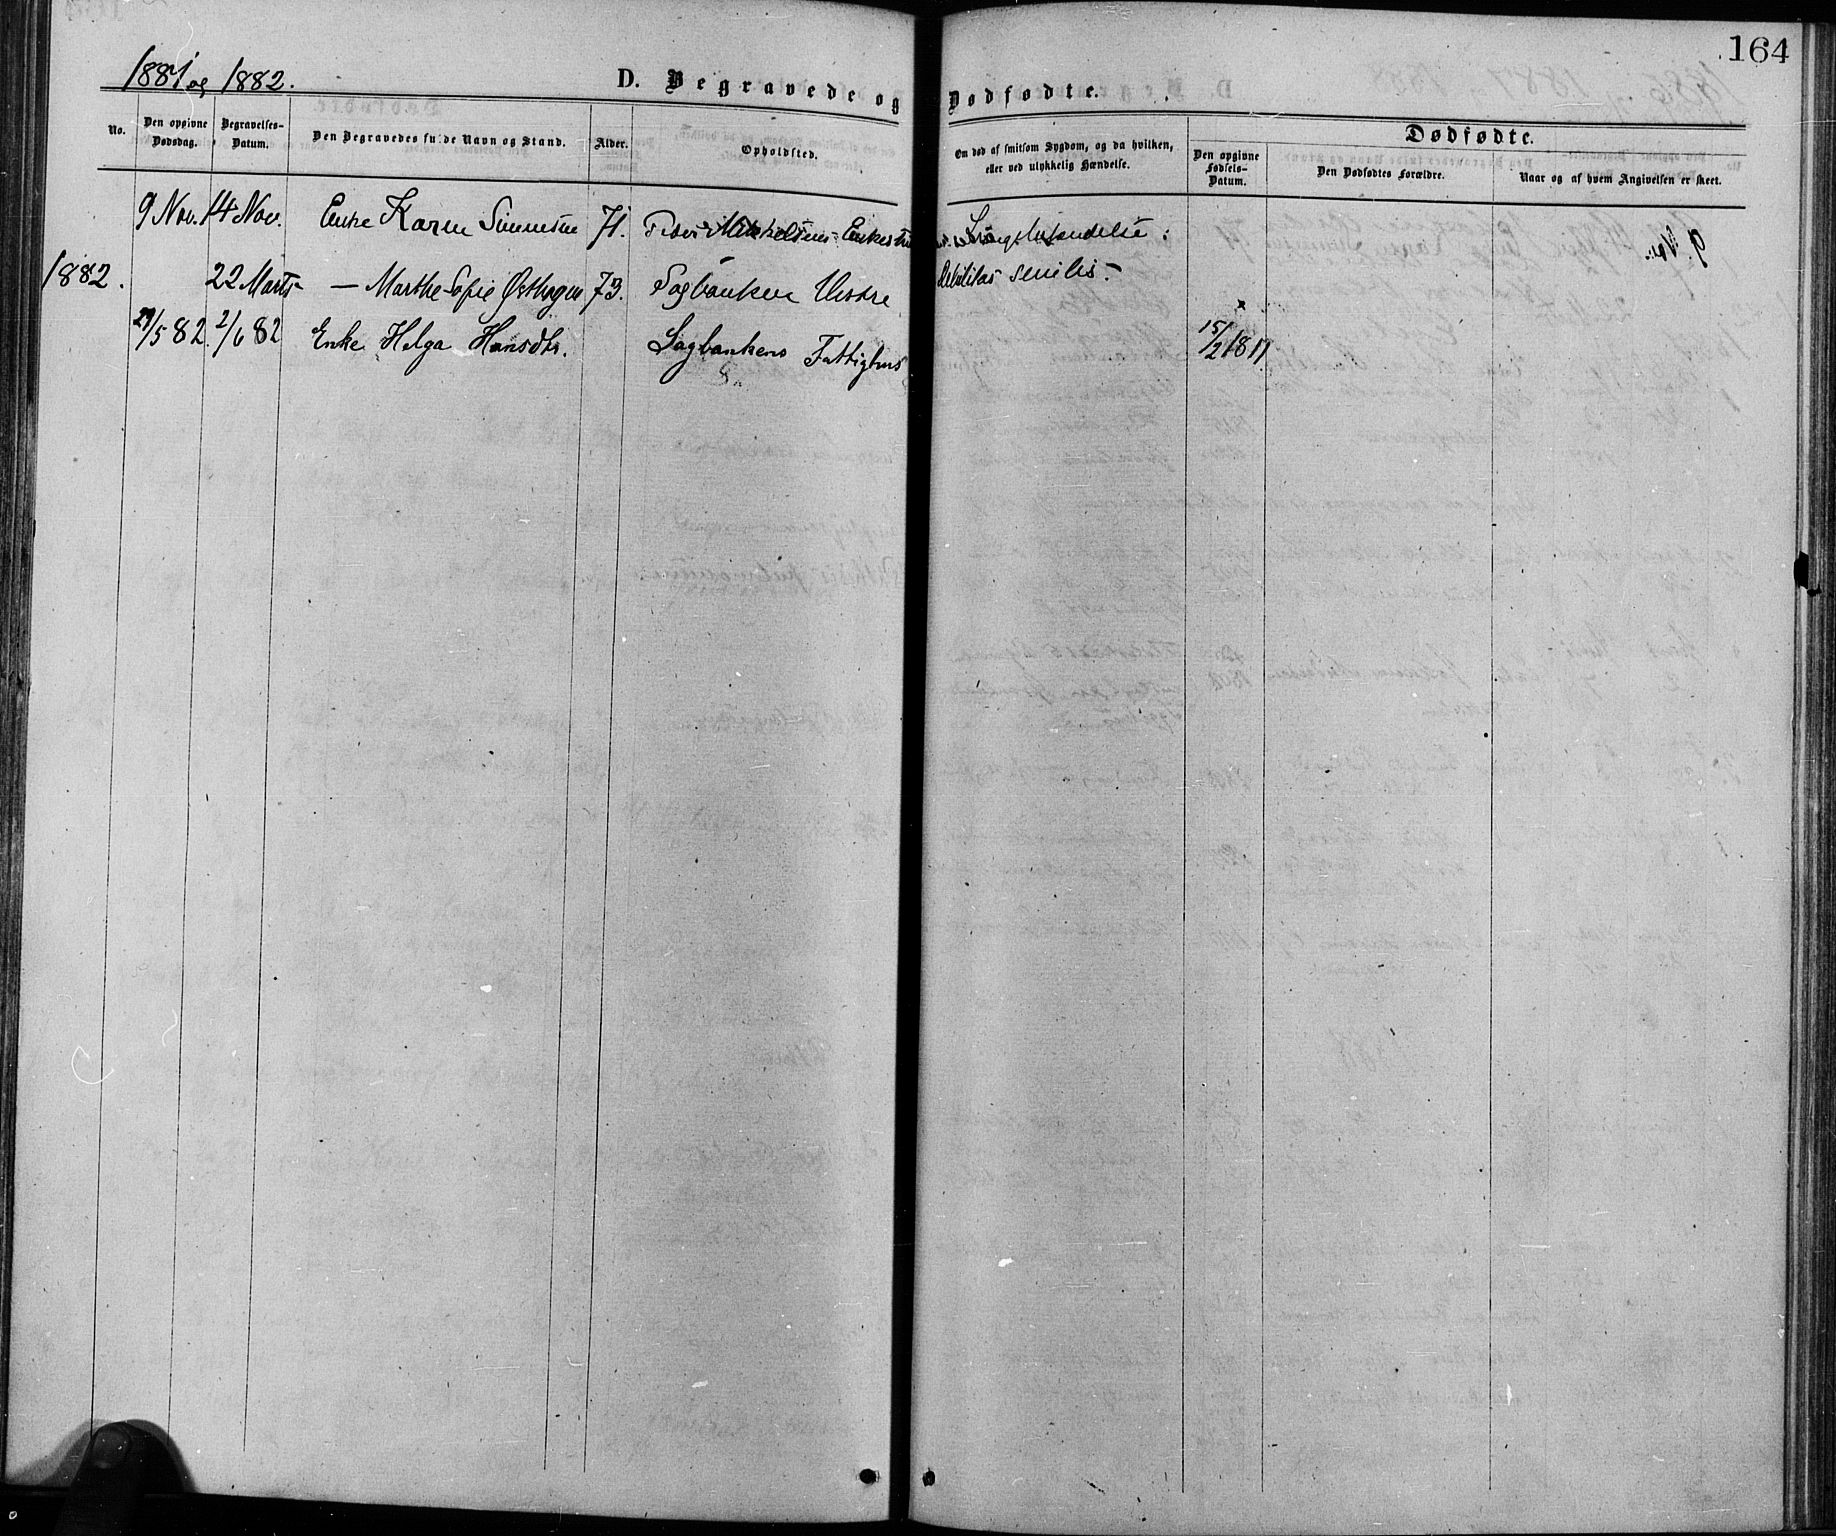 164
1881 og 1882.
D. Begravede og Dødfødte.
No.
Den opgivne Dødsdag.
Begravelses-Datum.
Den Begravedes fulde Navn og Stand.
Alder.
Opholdsted.
Om død af smitsom Sygdom, og da hvilken, eller ved ulykkelig Hændelse.
Dødfødte.
Den opgivne Fødsels-Datum.
Den Dødfødtes Forældre.
Naar og af hvem Angivelsen er skeet.
9 Nov. 14 Nov. Enke Karen 71. Mikkelsens 9. Nov.
1882. 22 Marts — Marthe Sofie Østhagen 73. Sagbanken Vestre Debilitas senilis.
29/5 82. 2/6 82 Enke Helga Hansdtr. Sagbankens Fattighus 15/2 1817